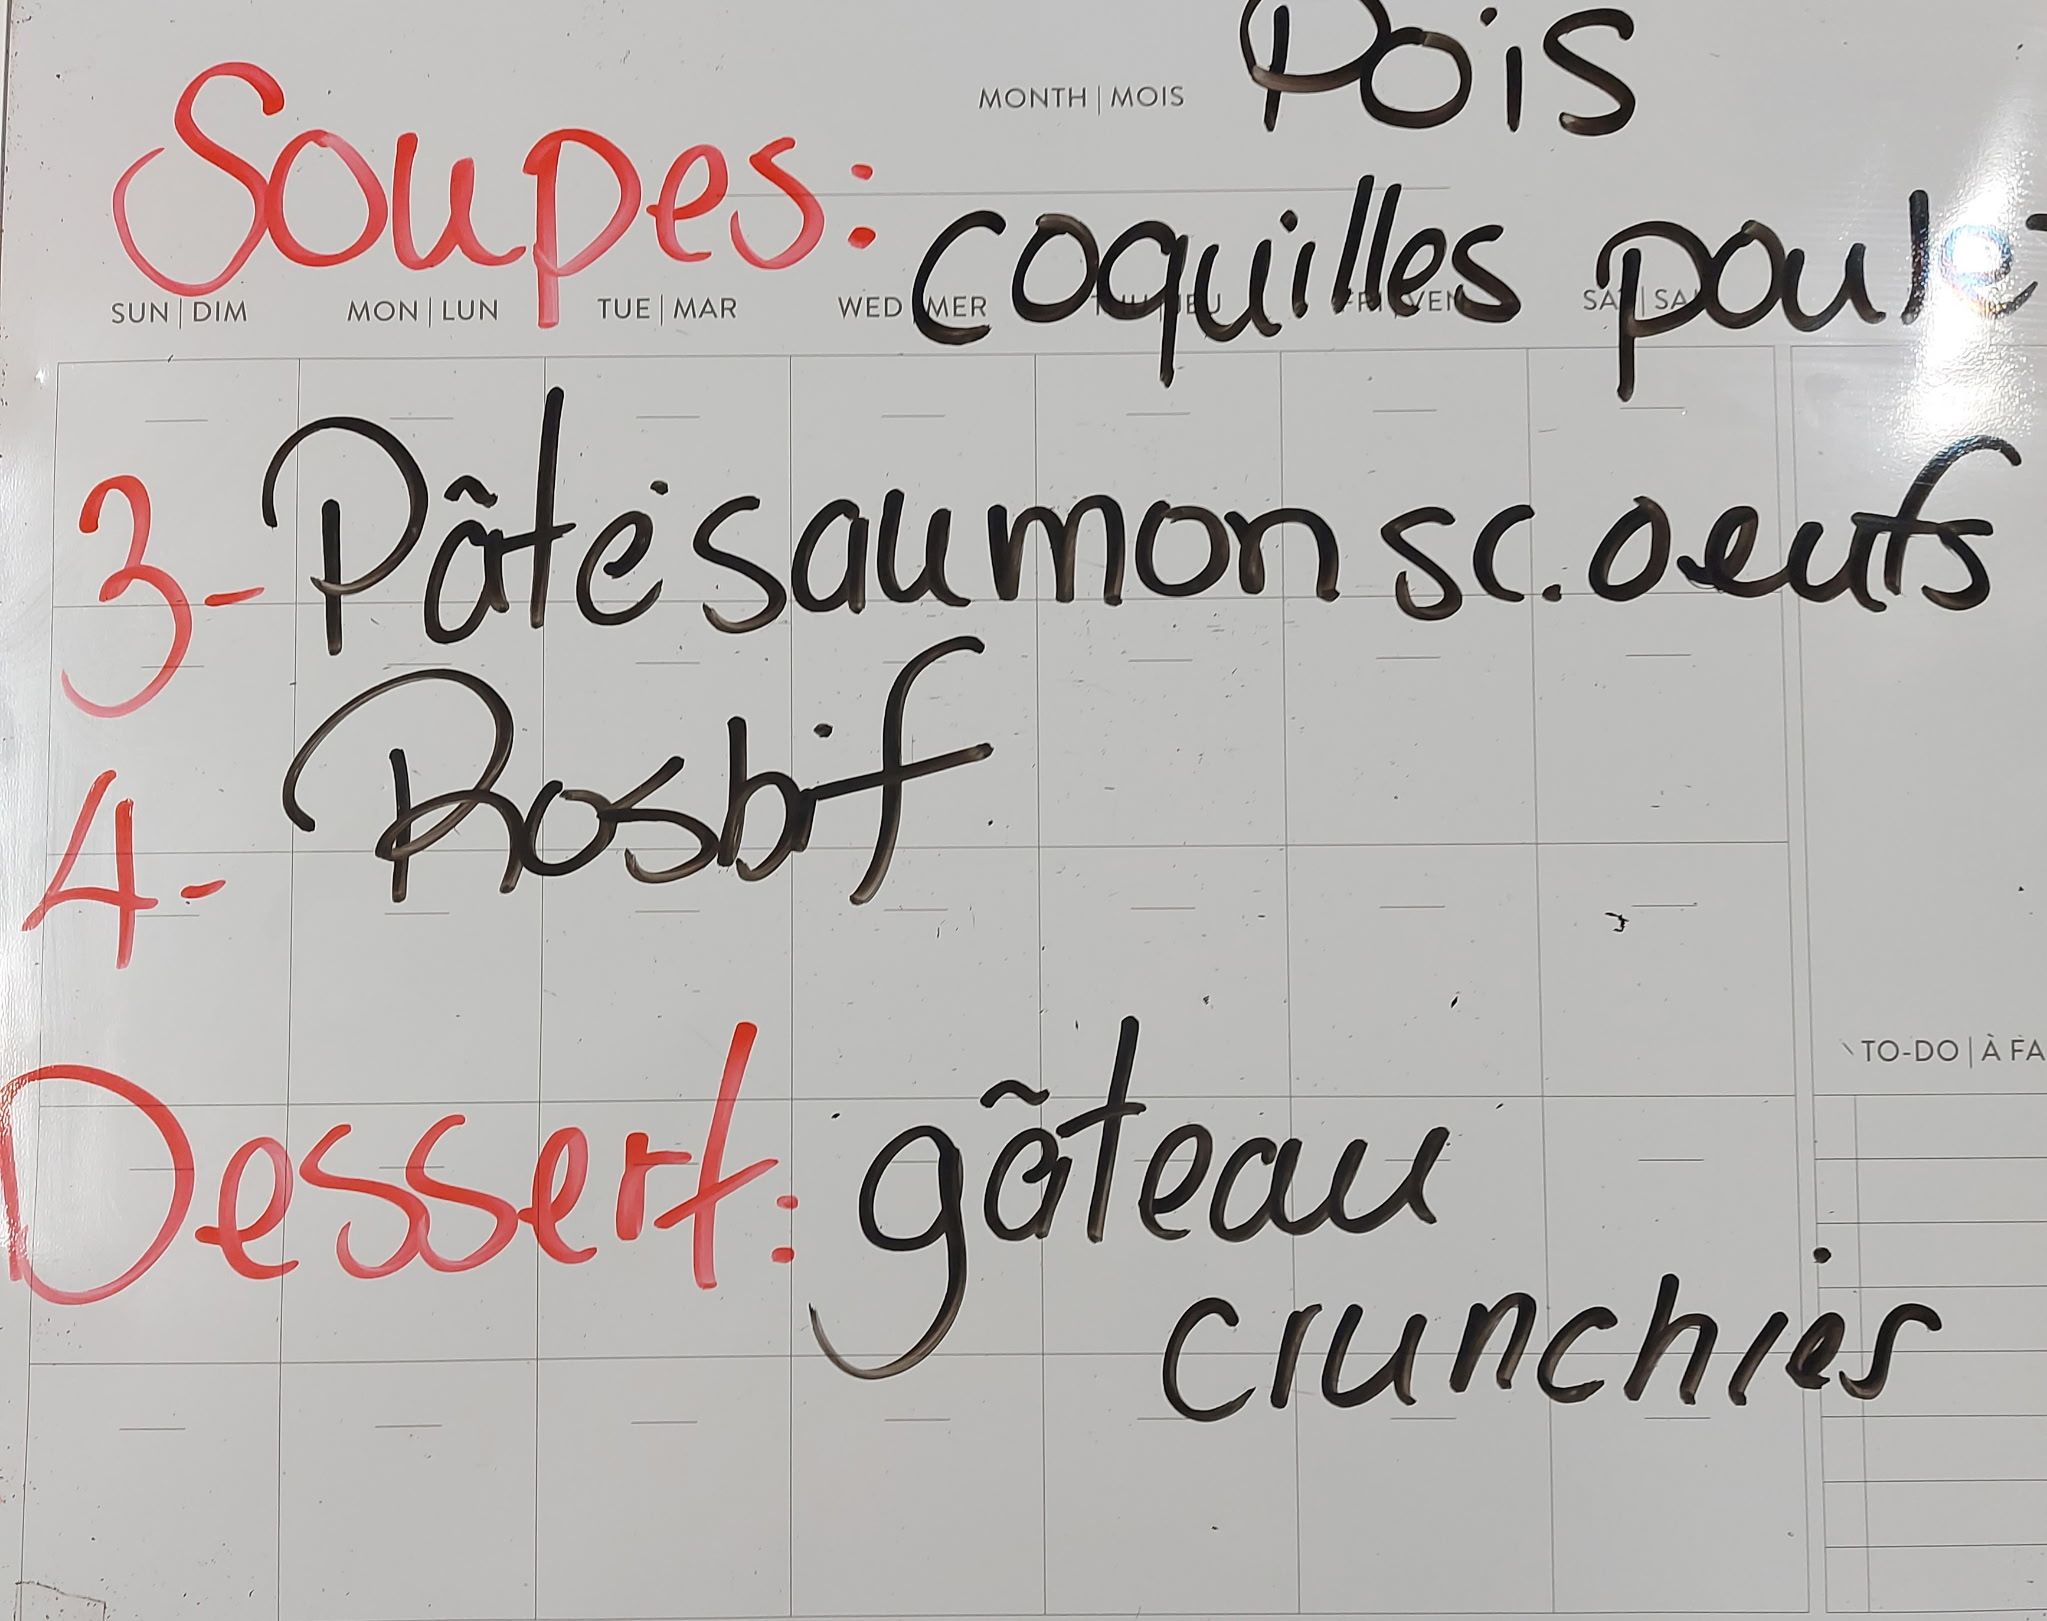 Pois
MONTH | MOIS
Soupes: coquilles poulet
SUN | DIM MON | LUN TUE | MAR WED | MER THU | JEU FRI | VEN SAT | SA
3- Pâté saumon sc. oeufs
4- Rosbif
TO-DO | À FA
Dessert: gâteau
crunchies